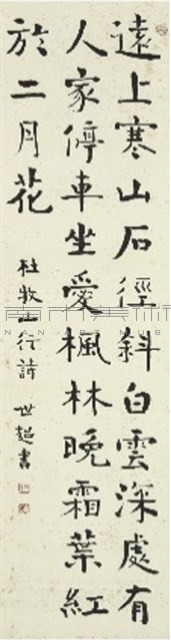 遠上寒山石徑斜白雲深處有
人家停車坐愛楓林晚霜葉紅
於二月花
杜牧山行詩 世超書